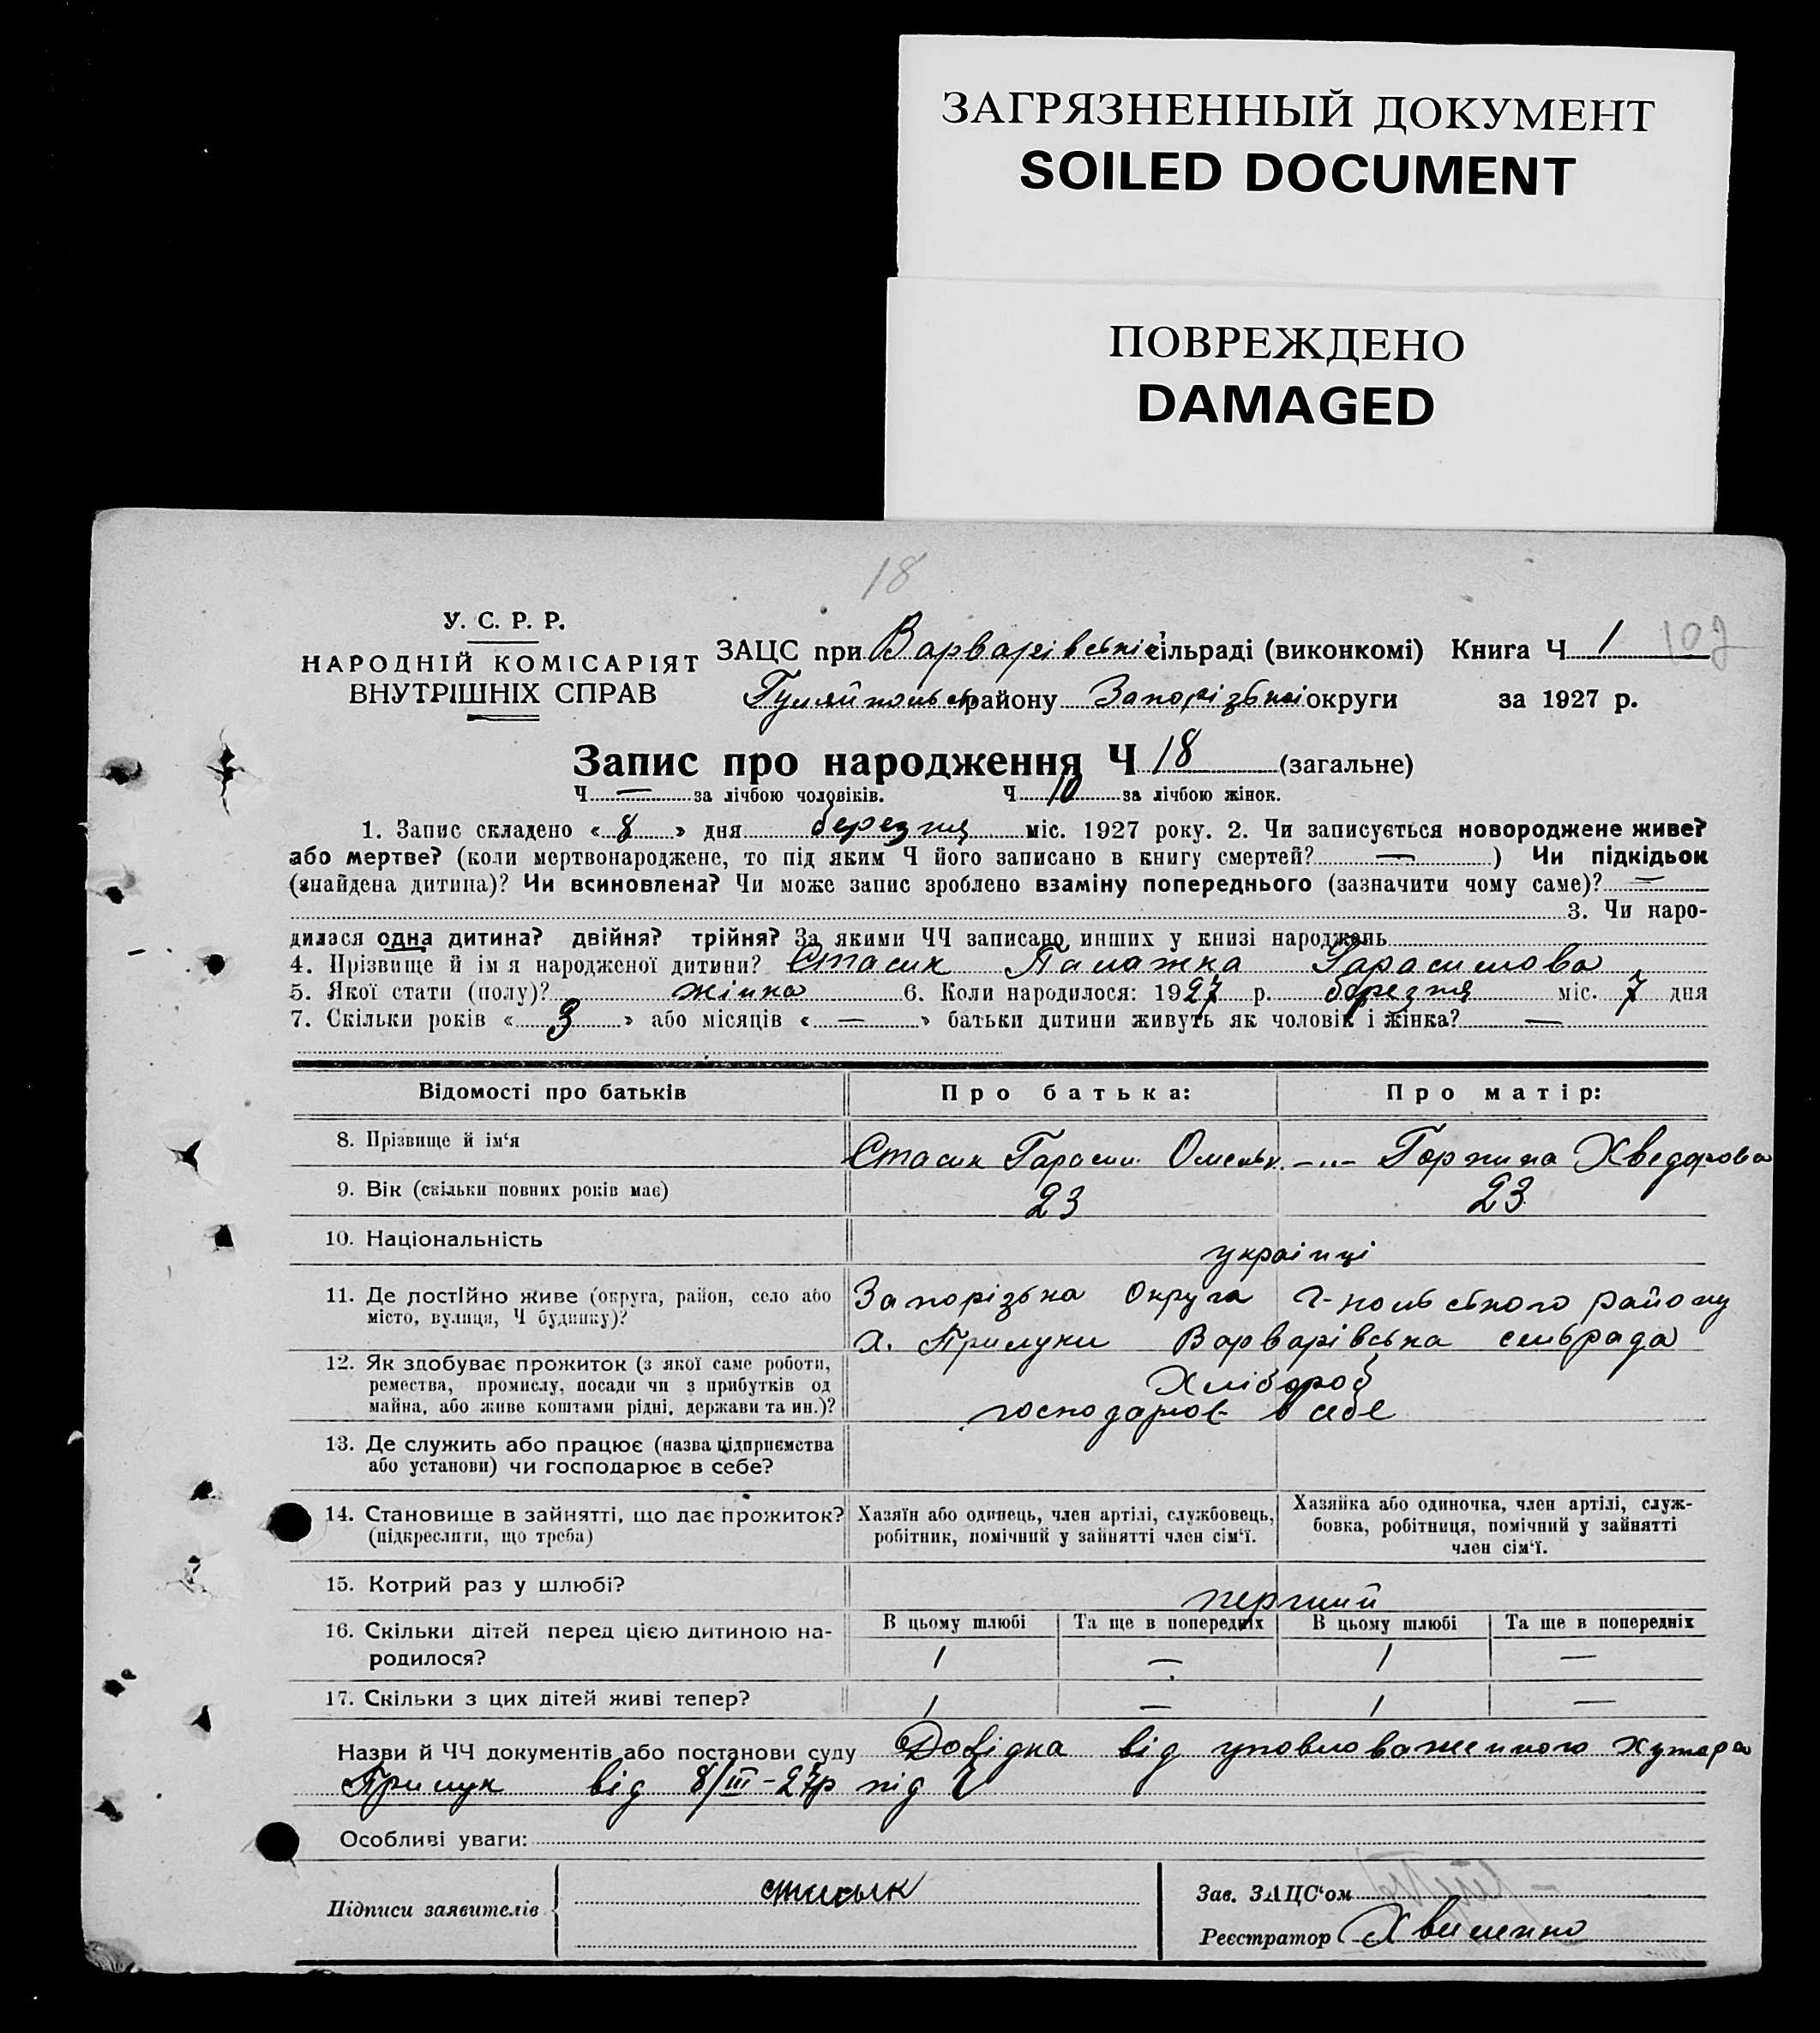 ЗАГРЯЗНЕННЫЙ ДОКУМЕНТ
SOILED DOCUMENT
ПОВРЕЖДЕНО
DAMAGED
18
У. С. Р. Р.
НАРОДНІЙ КОМІСАРІЯТ
ВНУТРІШНІХ СПРАВ
ЗАЦС при Варварівській сільраді (виконкомі) Книга Ч 1 102
Гуляйпольськ району Запорізької округи за 1927 р.
Запис про народження Ч 18 (загальне)
Ч — за лічбою чоловіків. Ч 10 за лічбою жінок.
1. Запис складено « 8 » дня березня міс. 1927 року. 2. Чи записується новороджене живе?
або мертве? (коли мертвонароджене, то під яким Ч його записано в книгу смертей? — ) Чи підкідьок
(знайдена дитина)? Чи всиновлена? Чи може запис зроблено взаміну попереднього (зазначити чому саме)? —
3. Чи наро-
дилася одна дитина? двійня? трійня? За якими ЧЧ записано инших у книзі народжень
4. Прізвище й ім я народженої дитини? Стасик Палажка Гарасимова
5. Якої стати (полу)? жінка 6. Коли народилося: 1927 р. березня міс. 7 дня
7. Скільки років « 3 » або місяців « — » батьки дитини живуть як чоловік і жінка? —
Відомості про батьків Про батька: Про матір:
8. Прізвище й ім‘я Стасик Гарасим Омельк. -"- Горпина Хведорова
9. Вік (скільки повних років має) 23 23
10. Національність українці
11. Де постійно живе (округа, район, село або місто, вулиця, Ч будинку)?
Запорізька Округа Г-польського району
х. Прилуки Варварівська сельрада
12. Як здобуває прожиток (з якої саме роботи,
ремества, промислу, посади чи з прибутків од
майна, або живе коштами рідні, держави та ин.)?
Хлібороб
господарює в себе
13. Де служить або працює (назва підприємства
або установи) чи господарює в себе?
14. Становище в зайнятті, що дає прожиток?
(підкреслити, що треба)
Хазяїн або одинець, член артілі, службовець,
робітник, помічний у зайнятті член сім‘ї.
Хазяйка або одиночка, член артілі, служ-
бовка, робітниця, помічний у зайнятті
член сім‘ї.
15. Котрий раз у шлюбі? перший
16. Скільки дітей перед цією дитиною на-
родилося?
В цьому шлюбі Та ще в попередніх В цьому шлюбі Та ще в попередніх
1 — 1 —
17. Скільки з цих дітей живі тепер? 1 — 1 —
Назви й ЧЧ документів або постанови суду Довідка від уповноваженного хутара
Прилук від 8/III-27р під Ч
Особливі уваги:
Підписи заявителів стисык
Зав. ЗАЦС‘ом
Реєстратор Хвименко